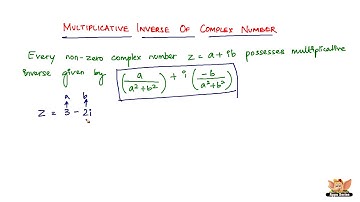 MULTIPLICATIVE INVERSE OF COMPLEX NUMBER
Every non-zero complex number z = a + ib possesses multiplicative
inverse given by (a/(a²+b²)) + i (-b/(a²+b²))
a b
↑ ↑
z = 3 - 2i